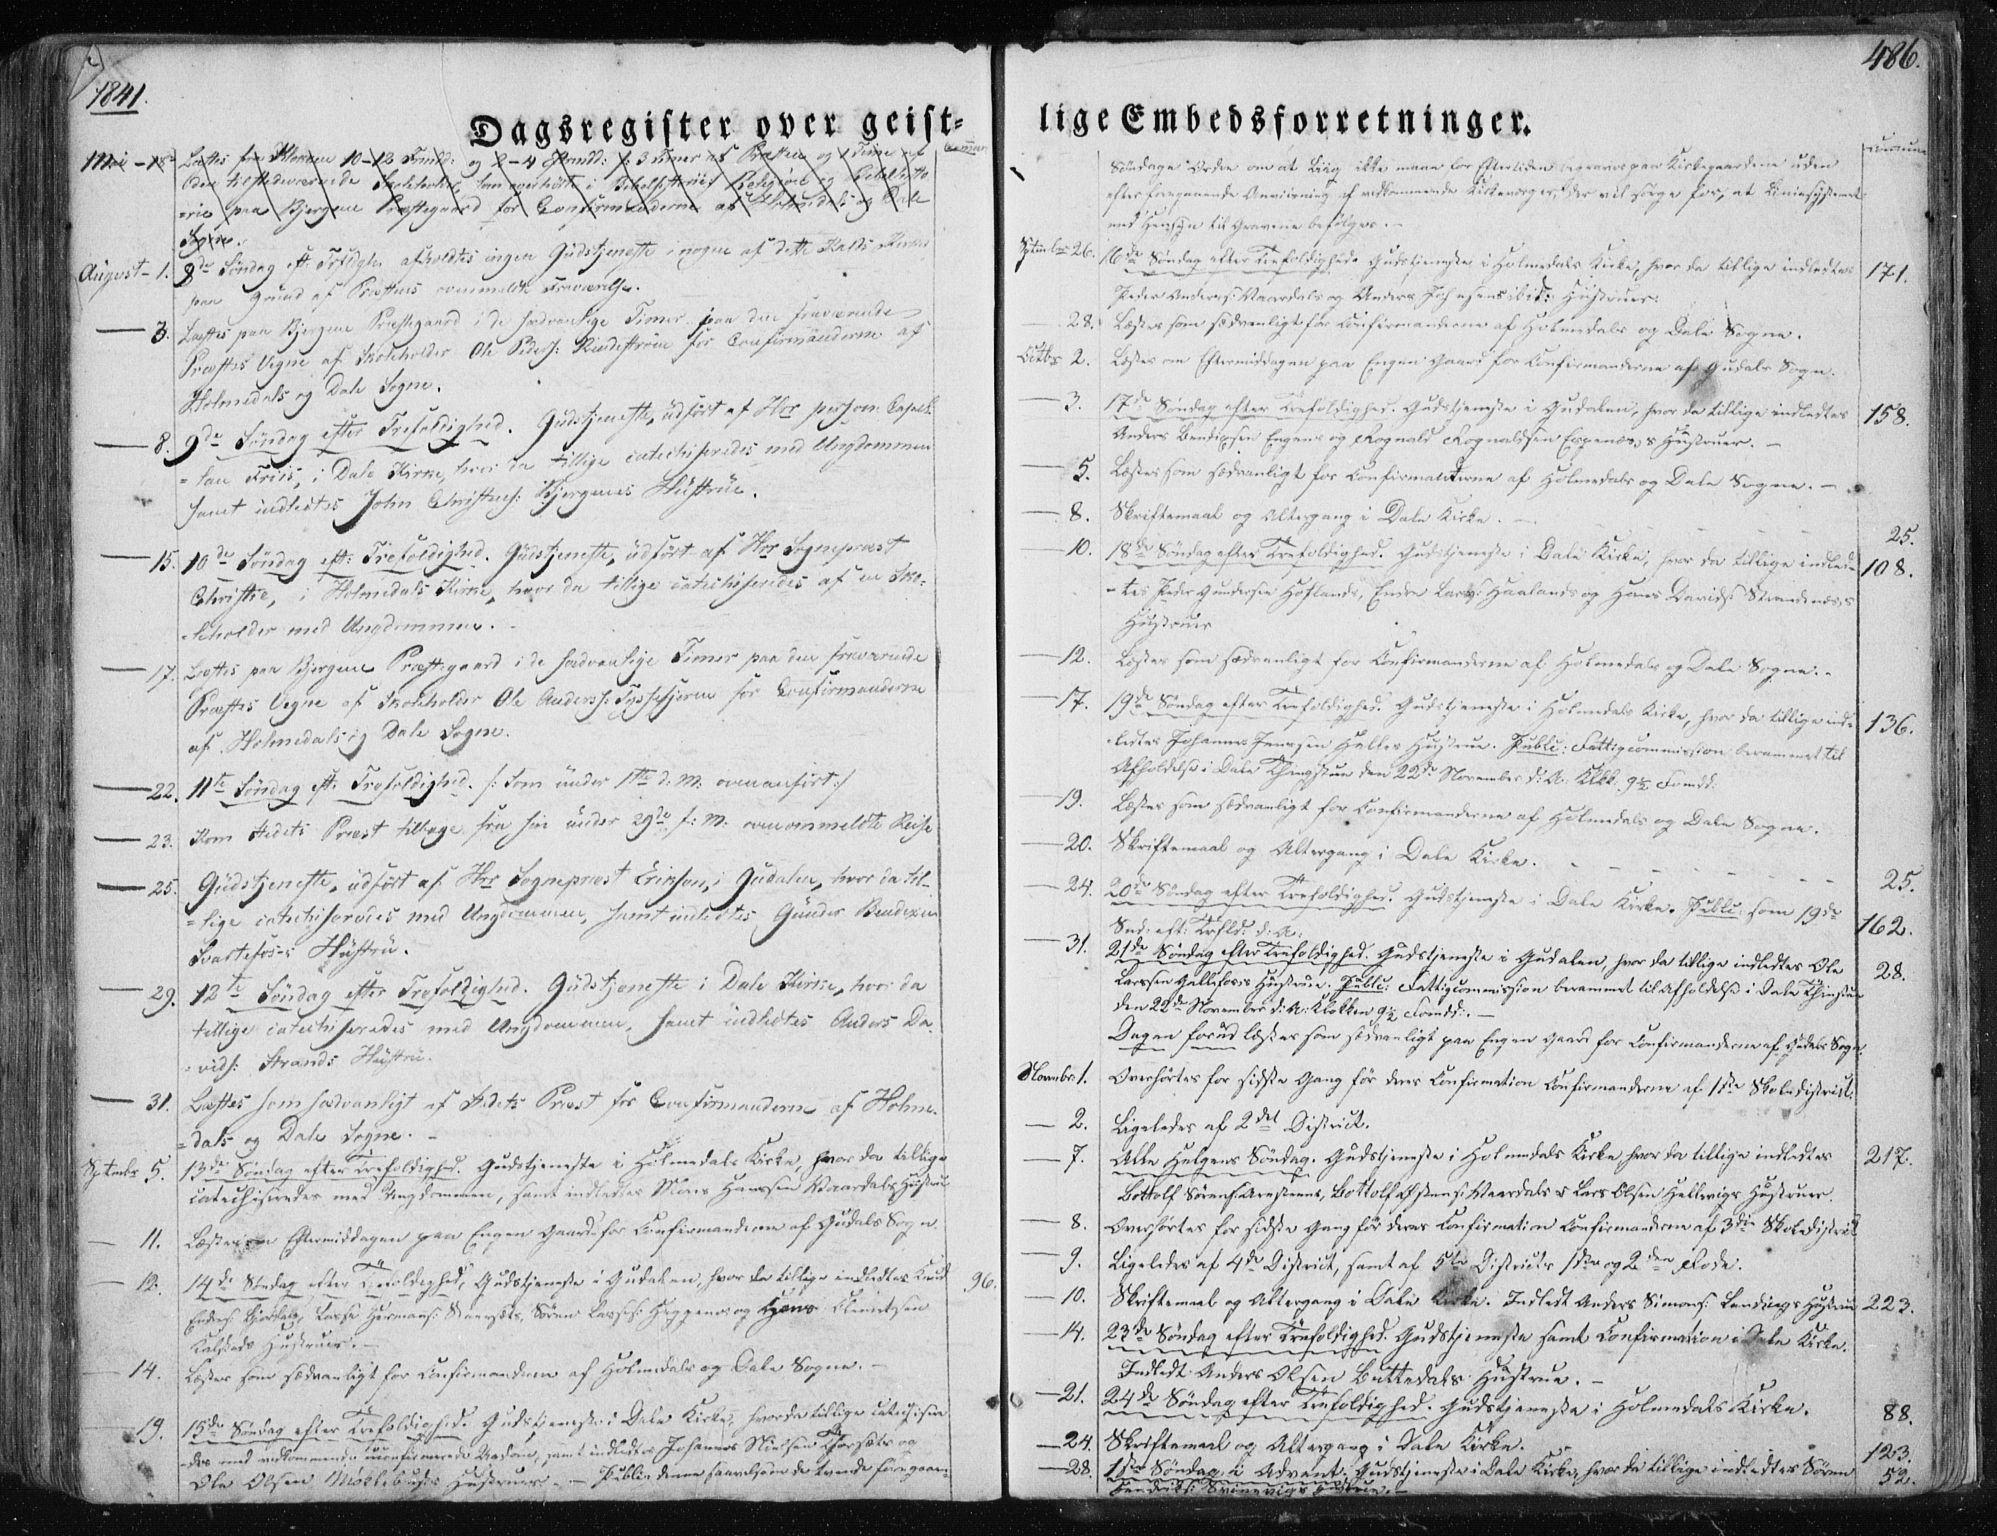 1841.
486.
Dagsregister over geist-
lige Embedsforretninger.
Mai - 18de Læstes fra Klokken 10-12 Formd: og 2-4 Eftmdd: 3 Timer af Præsten og 1 Time af
den tilstedeværende Skoleholder, som overhørte i Bibelhistorie Religion og
paa Bjergene Præstegaard for Confirmanderne af Holmedals og Dale
Sogne.
August - 1. 8de Søndag eft: Trfldgh. afholdtes ingen Gudstjeneste i nogen af dette Kalds Kirker
paa Grund af Præstens ovenmeldte Fraværelse.
3. Læstes paa Bjergene Præstegaard i de sædvanlige Timer paa den fraværende
Præstes Vegne af Skoleholder Ole Peders: for Confirmanderne af
Holmedals og Dale Sogne.
8. 9de Søndag efter Trefoldighed. Gudstjeneste, udført af Hrr person: Capel-
=lan Friis, i Dale Kirke, hvor da tillige catechiseredes med Ungdommen
samt indledtes John Christens: Bjergenes Hustrue.
15. 10de Søndag eft: Trefoldighed. Gudstjeneste, udført af Hrr Sognepræst
Christie, i Holmedals Kirke, hvor da tillige catechiseredes af en Sko-
-leholder med Ungdommen.
17. Læstes paa Bjergene Præstegaard i de sædvanlige Timer paa den fraværende
Præstes Vegne af Skoleholder Ole Anderss: for Confirmanderne
af Holmedals og Dale Sogne.
22. 11te Søndag eft. Trefoldighed. /: Som under 1ste d: M: ovenanført :/
23. Kom Stedets Præst tilbage fra sin under 29de f: M: ovenommeldte Reise
25. Gudstjeneste, udført af Hrr Sognepræst Erikson, i Gudalen, hvor da til-
=lige catechiseredes med Ungdommen, samt indledtes Gunder Bendixen
Svartefos-s Hustru.
29. 12te Søndag efter Trefoldighed. Gudstjeneste i Dale Kirke, hvor da
tillige catechiseredes med Ungdommen, samt indledtes Anders Da-
=vids: Strands Hustru.
31. Læstes som sædvanligt af Stedets Præst for Confirmanderne af Holme-
=dals og Dale Sogne.
Septembr 5. 13de Søndag efter Trefoldighed. Gudstjeneste i Holmedals Kirke, hvor da tillige
catechiseredes med Ungdommen, samt indledtes Mons Hanssen Waardals Hustrue
11. Læstes om Eftermiddagen paa Engen Gaard for Confirmanderne af Gudals Sogn
12. 14de Søndag efter Trefoldighed. Gudstjeneste i Gudalen, hvor da tillige indledtes Knud 96.
Enders: Lasse Hermans: Søren Lasses: Heggenes og Hans Clemetsen
Hustruer.
14. Læstes som sædvanligt for Confirmanderne af Holmedals og Dale Sogne.
19. 15de Søndag efter Trefoldighed. Gudstjeneste i Dale Kirke, hvor da tillige catechisere-
-des med vedkommende uconfirmerede Ungdom, samt indledtes Johannes Nielsen og
Ole Olsen Hustruer. Public: denne saavelsom de tvende foregaaen-
Søndage Ordre om at Liig ikke maae for Eftertiden begraves paa Kirkegaardene uden
efter foregaaende Anviisning af vedkommende Kirkeværger, der vil sørge for, at Liniesystemet
med Hensyn til Gravene befølges.
Septembr 26. 16de Søndag efter Trefoldighed. Gudstjeneste i Holmedals Kirke, hvor da tillige indledtes 171.
Peder Anderss: Waardals og Anders Johansens ibid: Hustruer.
28. Læstes som sædvanligt for Confirmanderne af Holmedals og Dale Sogne.
Octbr 2. Læstes om Eftermiddagen paa Engen Gaard for Confirmanderne af Gudals Sogn.
3. 17de Søndag efter Trefoldighed. Gudstjeneste i Gudalen, hvor da tillige indledtes 158.
Anders Bendixsen Engens og Rognald Rognaldsen Espenæs-s Hustruer.
5. Læstes som sædvanligt for Confirmanderne af Holmedals og Dale Sogne.
8. Skriftemaal og Altergang i Dale Kirke. 25.
10. 18de Søndag efter Trefoldighed. Gudstjeneste i Dale Kirke, hvor da tillige indled- 108.
-tes Peder Gundersen Høflands, Endre Lars: Haalands og Hans Davids: Strandenæs's
Hustruer
12. Læstes som sædvanligt for Confirmanderne af Holmedals og Dale Sogne.
17. 19de Søndag efter Trefoldighed. Gudstjeneste i Holmedals Kirke, hvor da tillige ind- 136.
-ledtes Johannes Jenssen Helles Hustrue. Public: Fattigcommission berammet til
Afholdelse i Dale Thingstue den 22de November d: A: Klkk. 9½ Formdd:
19. Læstes som sædvanligt for Confirmanderne af Holmedals og Dale Sogne.
20. Skriftemaal og Altergang i Dale Kirke. 25.
24. 20de Søndag efter Trefoldighed. Gudstjeneste i Dale Kirke. Public: som 19de 162.
Snd: eft: Trfld: d: A:
31. 21de Søndag efter Trefoldighed. Gudstjeneste i Gudalen, hvor da tillige indledtes Ole 28.
Larssen Gallefoss's Hustrue. Public: Fattigcommission berammet til Afholdelse i Dale Thinstue
den 22de November d: A: Klokken 9½ Formdd:.
Dagen forud læstes som sædvanligt paa Engen Gaard for Confirmanderne af Gudals Sogn.
Novembr 1. Overhørtes for sidste Gang før deres Confirmation Confirmanderne af 1ste Skoledistrict.
2. Ligeledes af 2det District.
7. Alle Helgens Søndag. Gudstjeneste i Holmedals Kirke, hvor da tillige indledtes 217.
Bottolf Sørens: Bottolf Waardals & Lars Olsen Hellevigs Hustruer.
8. Overhørtes for sidste Gang før deres Confirmation Confirmanderne af 3die Skoledistrict
9. Ligeledes af 4de District, samt af 5te Districts 1ste og 2den Rode.
10. Skriftemaal og Altergang i Dale Kirke. Indledt Anders Simons: Hustrue 223.
14. 23de Søndag efter Trefoldighed. Gudstjeneste samt Confirmation i Dale Kirke.
Indledt Anders Olsen Buttedals Hustrue.
21. 24de Søndag efter Trefoldighed. Gudstjeneste i Holmedals Kirke. 88.
24. Skriftemaal og Altergang i Dale Kirke. 123.
28. 1ste Søndag i Advent. Gudstjeneste i Dale Kirke, hvor da tillige indledtes Søren 52.
Hendriks: Hustrue.